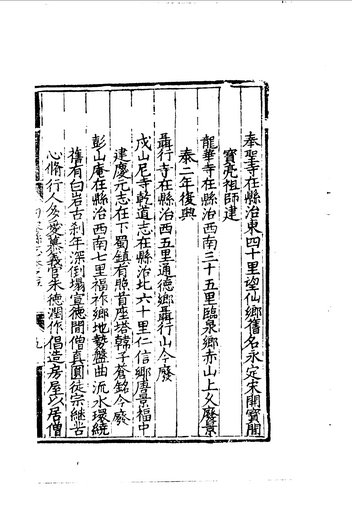 奉聖寺在縣治東四十里望仙鄉舊名永定宋開寶間
寶亮祖師建
龍華寺在縣治西南三十五里臨泉鄉赤山上久廢景
泰二年復興
聶行寺在縣治西五里通德鄉聶行山今廢
戍山尼寺乾道志在縣治北六十里仁信鄉唐景福中
建慶元志在下蜀鎮有照首座塔韓子蒼銘今廢
彭山庵在縣治西南七里福祚鄉地勢盤曲流水環繞
舊有白岩古剎年深倒塌宣德間僧真圓徒宗繼苦
心脩行人多愛慕義官朱德潤作倡造房屋以居僧